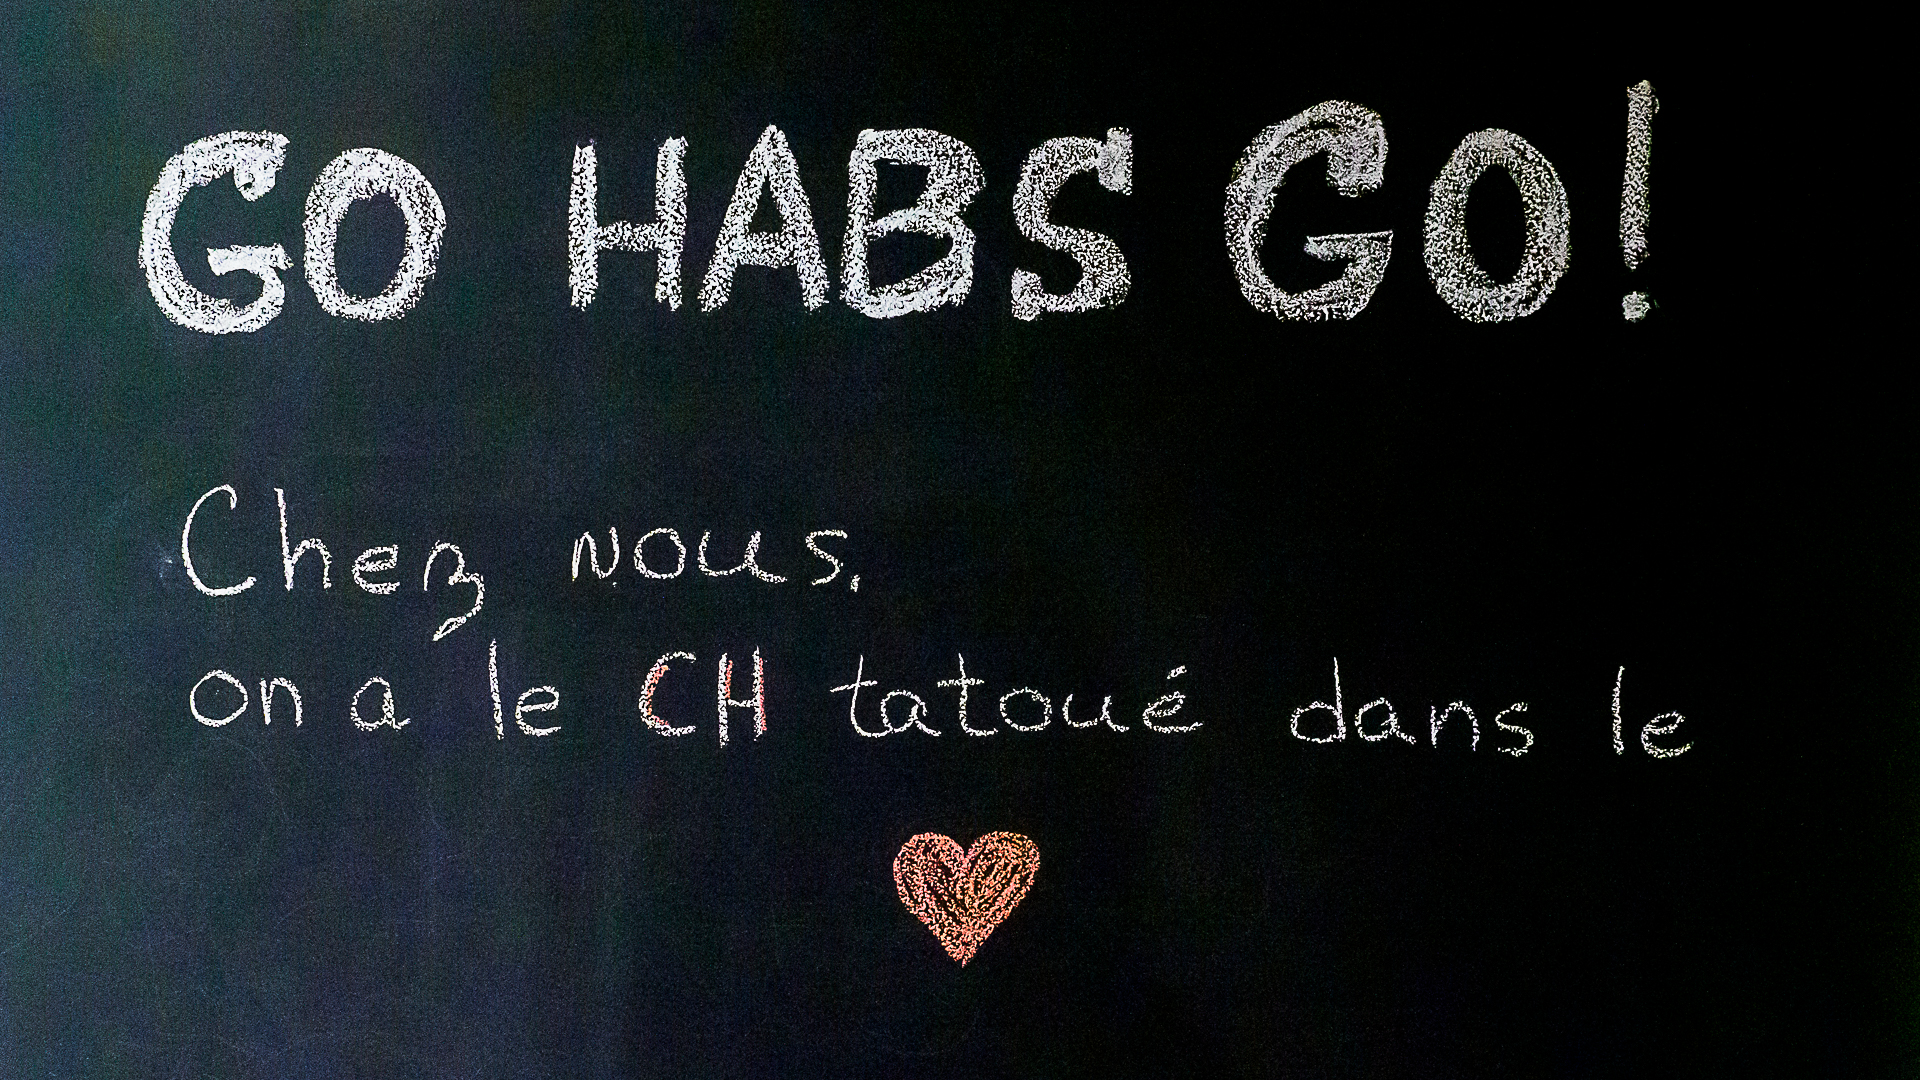 GO HABS GO!
Chez nous,
on a le CH tatoué dans le